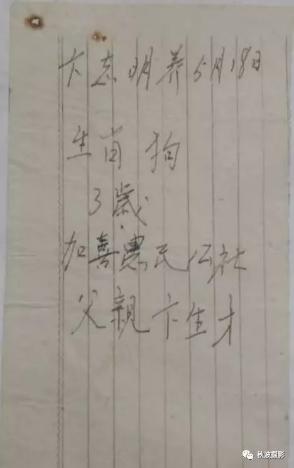 卞志明养5月18日
生肖 狗
3歳
加喜惠民公社
父親 卞生才
秋波摄影